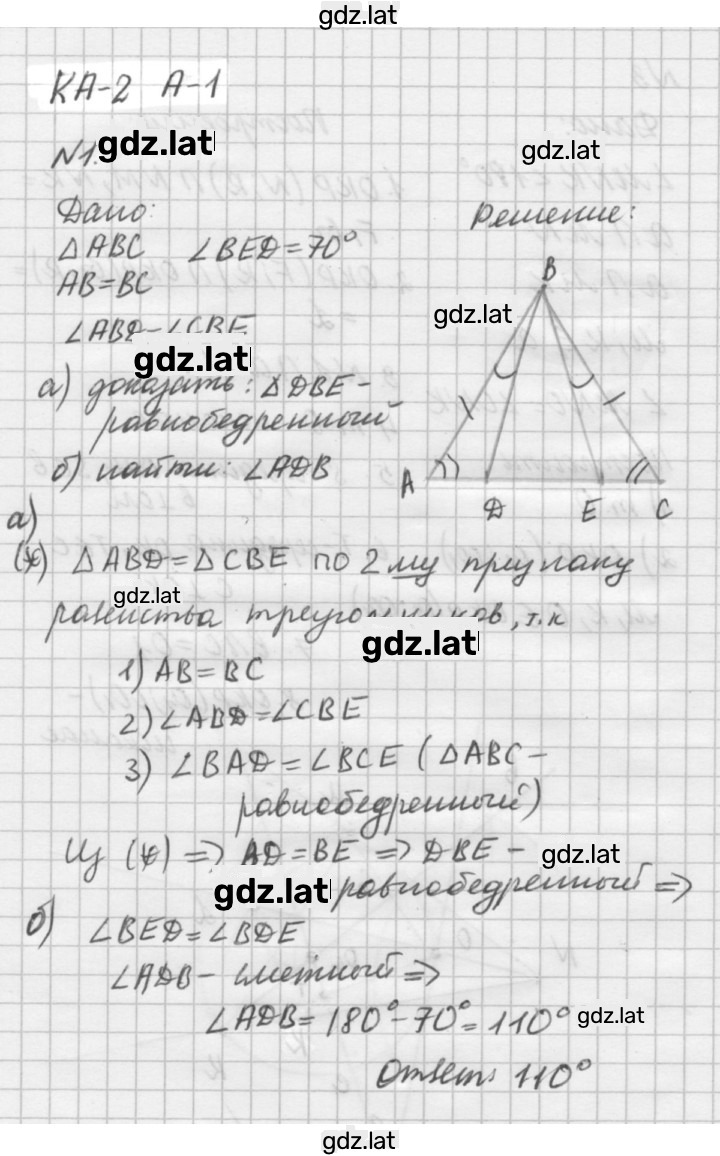 gdz.lat
КА-2 А-1
N1. gdz.lat
gdz.lat
Дано:
Решение:
△ABC ∠BED=70°
AB=BC
B
gdz.lat
∠ABD=∠CBE
gdz.lat
а) доказать: △DBE-
равнобедренный
б) найти: ∠ADB
A D E C
а)
(*) △ABD=△CBE по 2му признаку
gdz.lat
равенства треугольников, т.к
gdz.lat
1) AB=BC
2) ∠ABD=∠CBE
3) ∠BAD=∠BCE (△ABC-
равнобедренный)
Из (*) => BD=BE => DBE-
gdz.lat
gdz.lat равнобедренный =>
б) ∠BED=∠BDE
∠ADB- смежный =>
∠ADB=180°-70°=110°
gdz.lat
Ответ: 110°
gdz.lat